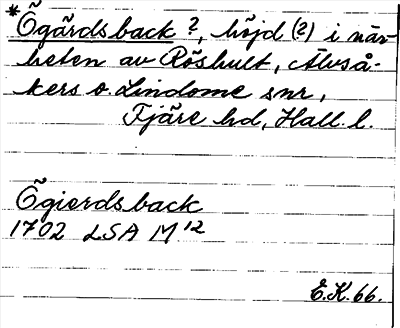 *Ögärdsback?, höjd (?) i när-
heten av Röshult, Älvså-
kers o. Lindome snr,
Fjäre hd, Hall. l.
Ögierdsback
1702 LSA M¹²
E.K. 66.